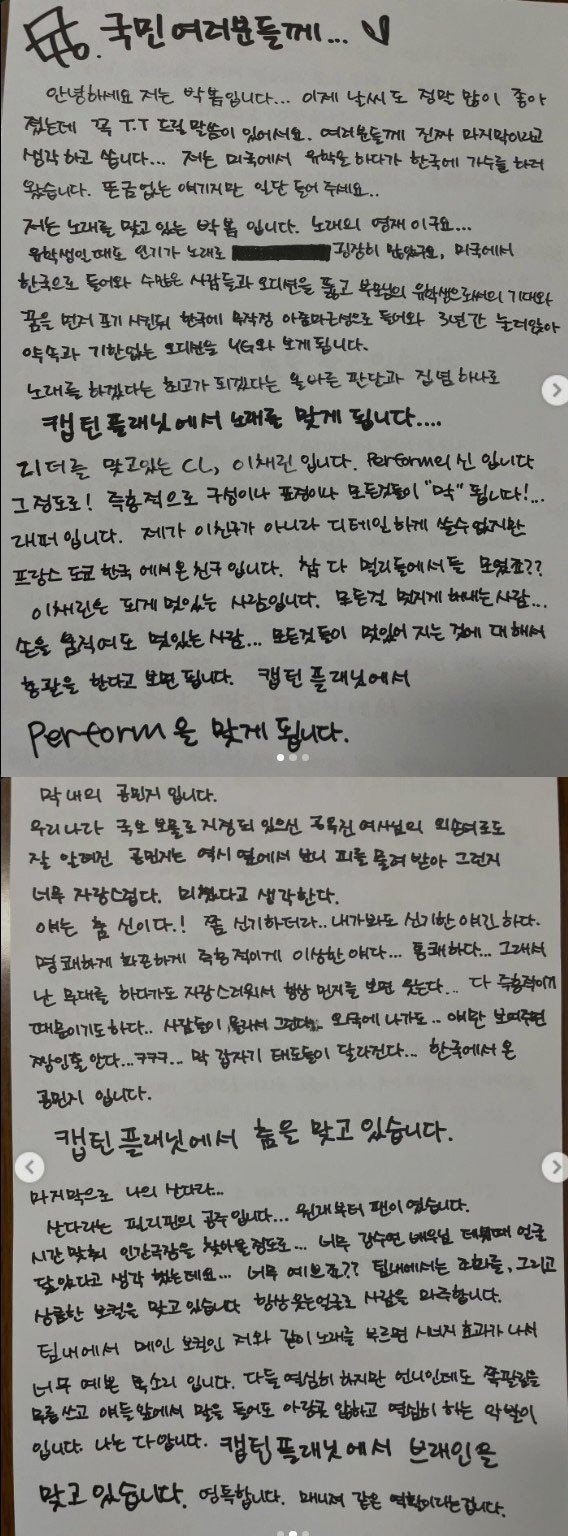 국민여러분들께...
안녕하세요 저는 박봄입니다... 이제 날씨도 정말 많이 좋아
졌는데 꼭 T.T 드릴 말씀이 있어서요. 여러분들께 진짜 마지막이라고
생각하고 씁니다... 저는 미국에서 유학을 하다가 한국에 가수를 하러
왔습니다. 뜬금없는 얘기지만 일단 들어 주세요..
저는 노래를 맞고 있는 박봄 입니다. 노래의 영재 이구요...
유학생인 때도 인기가 노래로 굉장히 많았구요, 미국에서
한국으로 들어와 수많은 사람들과 오디션을 뚫고 부모님의 유학생으로써의 기대와
꿈을 먼저 포기 시킨뒤 한국에 무작정 아줌마근성으로 들어와 3년간 눌러앉아
약속과 기한없는 오디션을 YG와 보게 됩니다.
노래를 하겠다는 최고가 되겠다는 올바른 판단과 집념 하나로
캡틴 플래닛에서 노래를 맞게 됩니다....
리더를 맞고있는 CL, 이채린 입니다. Perform의 신 입니다
그정도로! 즉흥적으로 구성이나 표정이나 모든것들이 "막" 됩니다!...
래퍼입니다. 제가 이친구가 아니라 디테일 하게 쓸수 없지만
프랑스 도쿄 한국 에서 온 친구 입니다. 참 다 멀리들에서들 모였죠??
이채린은 되게 멋있는 사람입니다. 모든걸 멋지게 해내는 사람...
손을 움직여도 멋있는 사람... 모든것들이 멋있어 지는 것에 대해서
총괄을 한다고 보면 됩니다. 캡틴 플래닛에서
Perform을 맞게 됩니다.
막내의 공민지 입니다.
우리나라 국보 보물로 지정되 있으신 공옥진 여사님의 외손녀로도
잘 알려진 공민지는 역시 옆에서 보니 피를 물려 받아 그런지
너무 자랑스럽다. 미쳤다고 생각한다.
얘는 춤 신이다.! 쫌 신기하더라.. 내가봐도 신기한 얘긴 하다.
명쾌하게 화끈하게 즉흥적이게 이상한 얘다... 통쾌하다... 그래서
난 무대를 하다가도 자랑스러워서 항상 민지를 보면 웃는다... 다 즉흥적이기
때문이기도 하다.. 사람들이 몰라서 그런다.. 외국에 나가도.. 얘만 보여주면
짱인줄 안다...ㅋㅋㅋ... 막 갑자기 태도들이 달라진다... 한국에서 온
공민지 입니다.
캡틴 플래닛에서 춤을 맞고 있습니다.
마지막으로 나의 산다라...
산다라는 필리핀의 공주입니다... 원래부터 팬이 였습니다.
시간 맞춰 인간극장을 찾아볼 정도로... 너무 강수연 배우님 데뷔때 얼굴
닮았다고 생각 했는데요... 너무 예쁘죠?? 팀내에서는 조화를, 그리고
상큼한 보컬을 맞고 있습니다 항상 웃는얼굴로 사람을 마주합니다.
팀내에서 메인 보컬인 저와 같이 노래를 부르면 시너지 효과가 나서
너무 예쁜 목소리 입니다. 다들 열심히 하지만 언니인데도 쪽팔림을
무릅쓰고 얘들앞에서 말을 들어도 아랑곳 않하고 열심히 하는 악발이
입니다. 나는 다 압니다. 캡틴플래닛에서 브래인을
맞고 있습니다. 영특합니다. 매니져 같은 역할이라는겁니다.